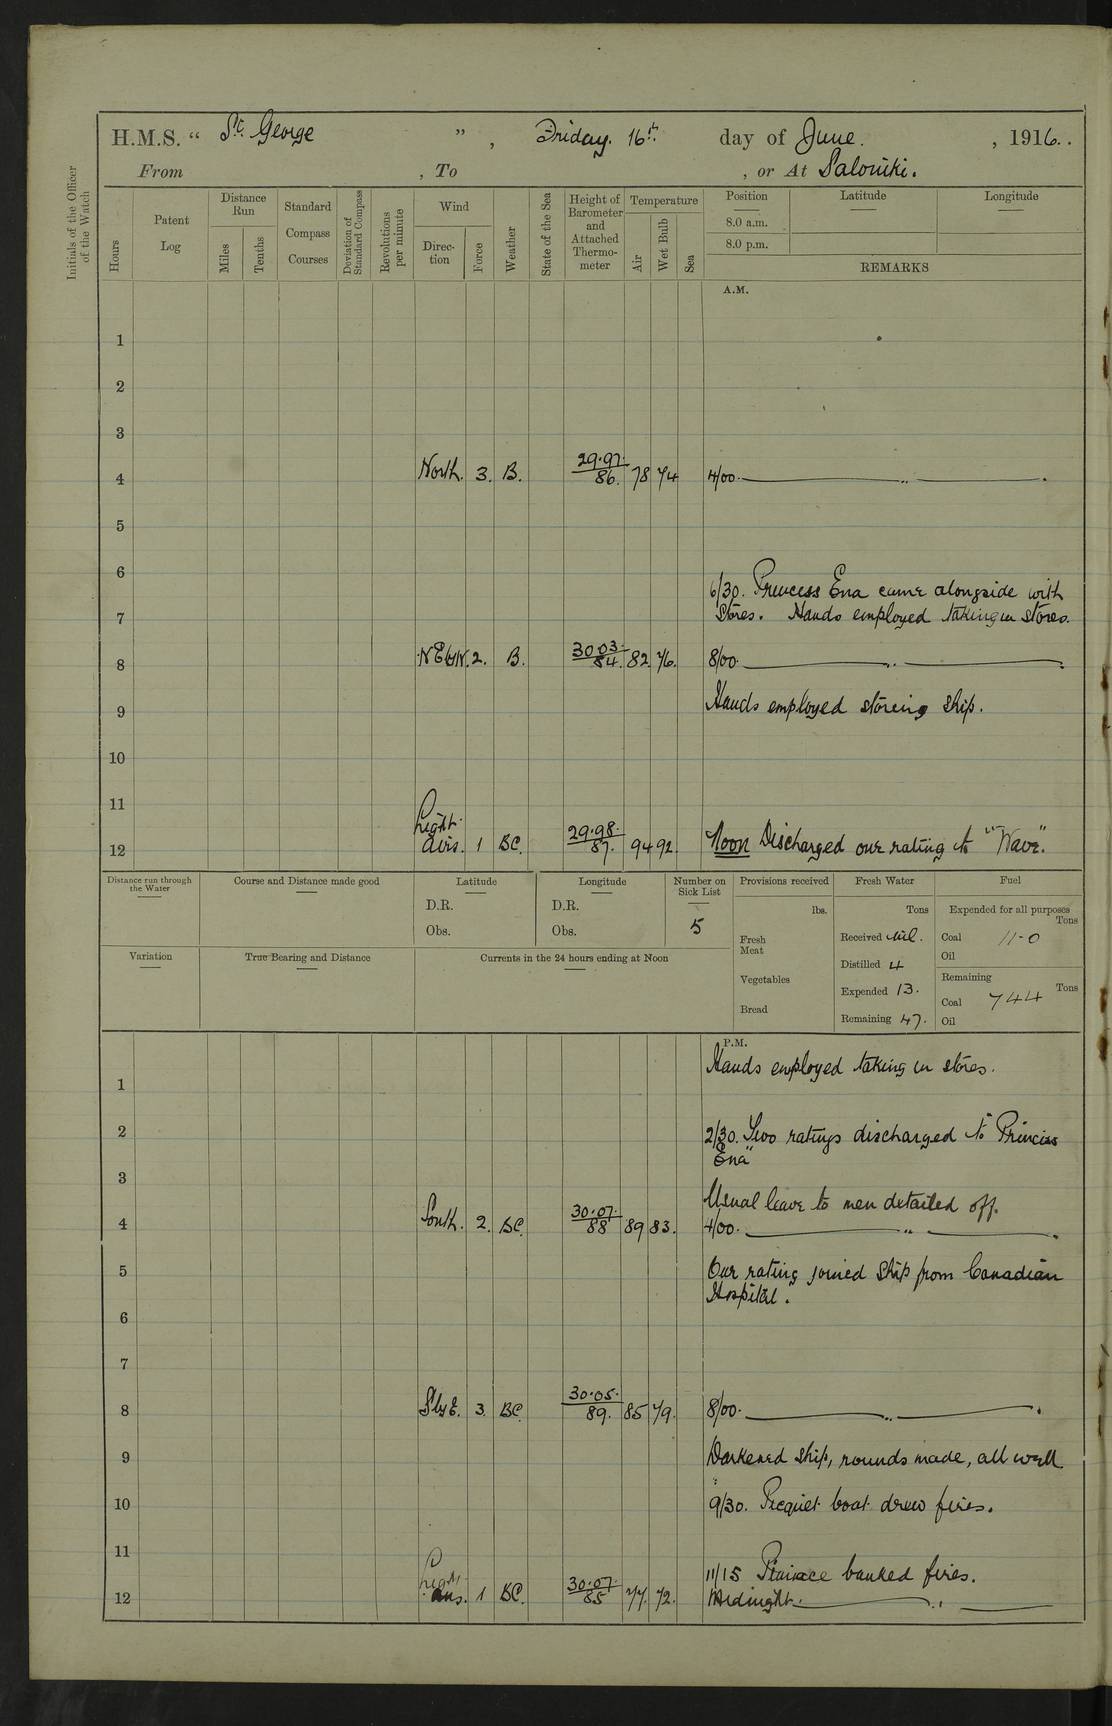 H.M.S. “ St. George ” , Friday. 16th. day of June. , 1916..
From , To , or At Salonika.
Initials of the Officer of the Watch
Hours
Patent Log
Distance Run
Miles
Tenths
Standard Compass Courses
Deviation of Standard Compass
Revolutions per minute
Wind
Direc-tion
Force
Weather
State of the Sea
Height of Barometer and Attached Thermo-meter
Temperature
Air
Wet Bulb
Sea
Position Latitude Longitude
8.0 a.m.
8.0 p.m.
REMARKS
A.M.
1
2
3
4 North. 3. B. 29.97. 86. 78 74 4/00. ,,
5
6
6/30. Princess Ena came alongside with
7 Stores. Hands employed taking in stores.
8 NEbyN. 2. B. 30.03. 84. 82 76. 8/00. ,,
9 Hands employed storing ship.
10
11
12 Light airs. 1 BC. 29.98. 87. 94 92. Noon Discharged one rating to "Wave".
Distance run through the Water
Course and Distance made good
Latitude
D.R.
Obs.
Longitude
D.R.
Obs.
Number on Sick List
5
Provisions received
lbs.
Fresh Meat
Vegetables
Bread
Fresh Water
Tons
Received Nil.
Distilled 4
Expended 13.
Remaining 47.
Fuel
Expended for all purposes
Tons
Coal 11-0
Oil
Remaining
Tons
Coal 744
Oil
Variation
True Bearing and Distance
Currents in the 24 hours ending at Noon
P.M.
Hands employed taking in stores.
1
2 2/30. Two ratings discharged to Princess
Ena"
3
Usual leave to men detailed off.
4 South. 2. BC. 30.07. 88 89 83. 4/00. ,,
5 One rating joined ship from Canadian
Hospital.
6
7
8 SbyE. 3. BC. 30.05. 89. 85 79. 8/00. ,,
9 Darkened ship, rounds made, all well
10 9/30. Picquet boat drew fires.
11
11/15 Pinnace banked fires.
12 Light airs. 1 BC. 30.07. 85 77. 72. Midnight. ,,